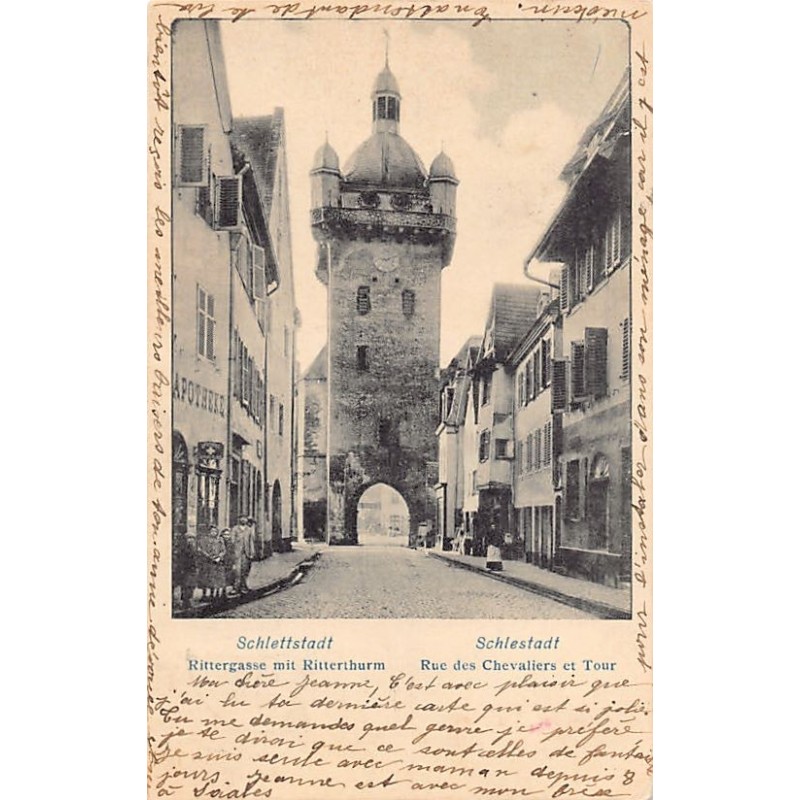 APOTHEKE
Schlettstadt
Rittergasse mit Ritterthurm
Schlestadt
Rue des Chevaliers et Tour
Ma chère Jeanne, C'est avec plaisir que
j'ai lu ta dernière carte qui est si jolie.
Tu me demandes quel genre je préfère
je te dirai que ce sont celles de fantaisie
je suis seule avec maman depuis 8
jours. Jeanne est avec mon frère
à
pour s'installer dans son ménage, car il est
médecin. En attendant de te lire
bientôt reçois les meilleurs baisers de ton amie